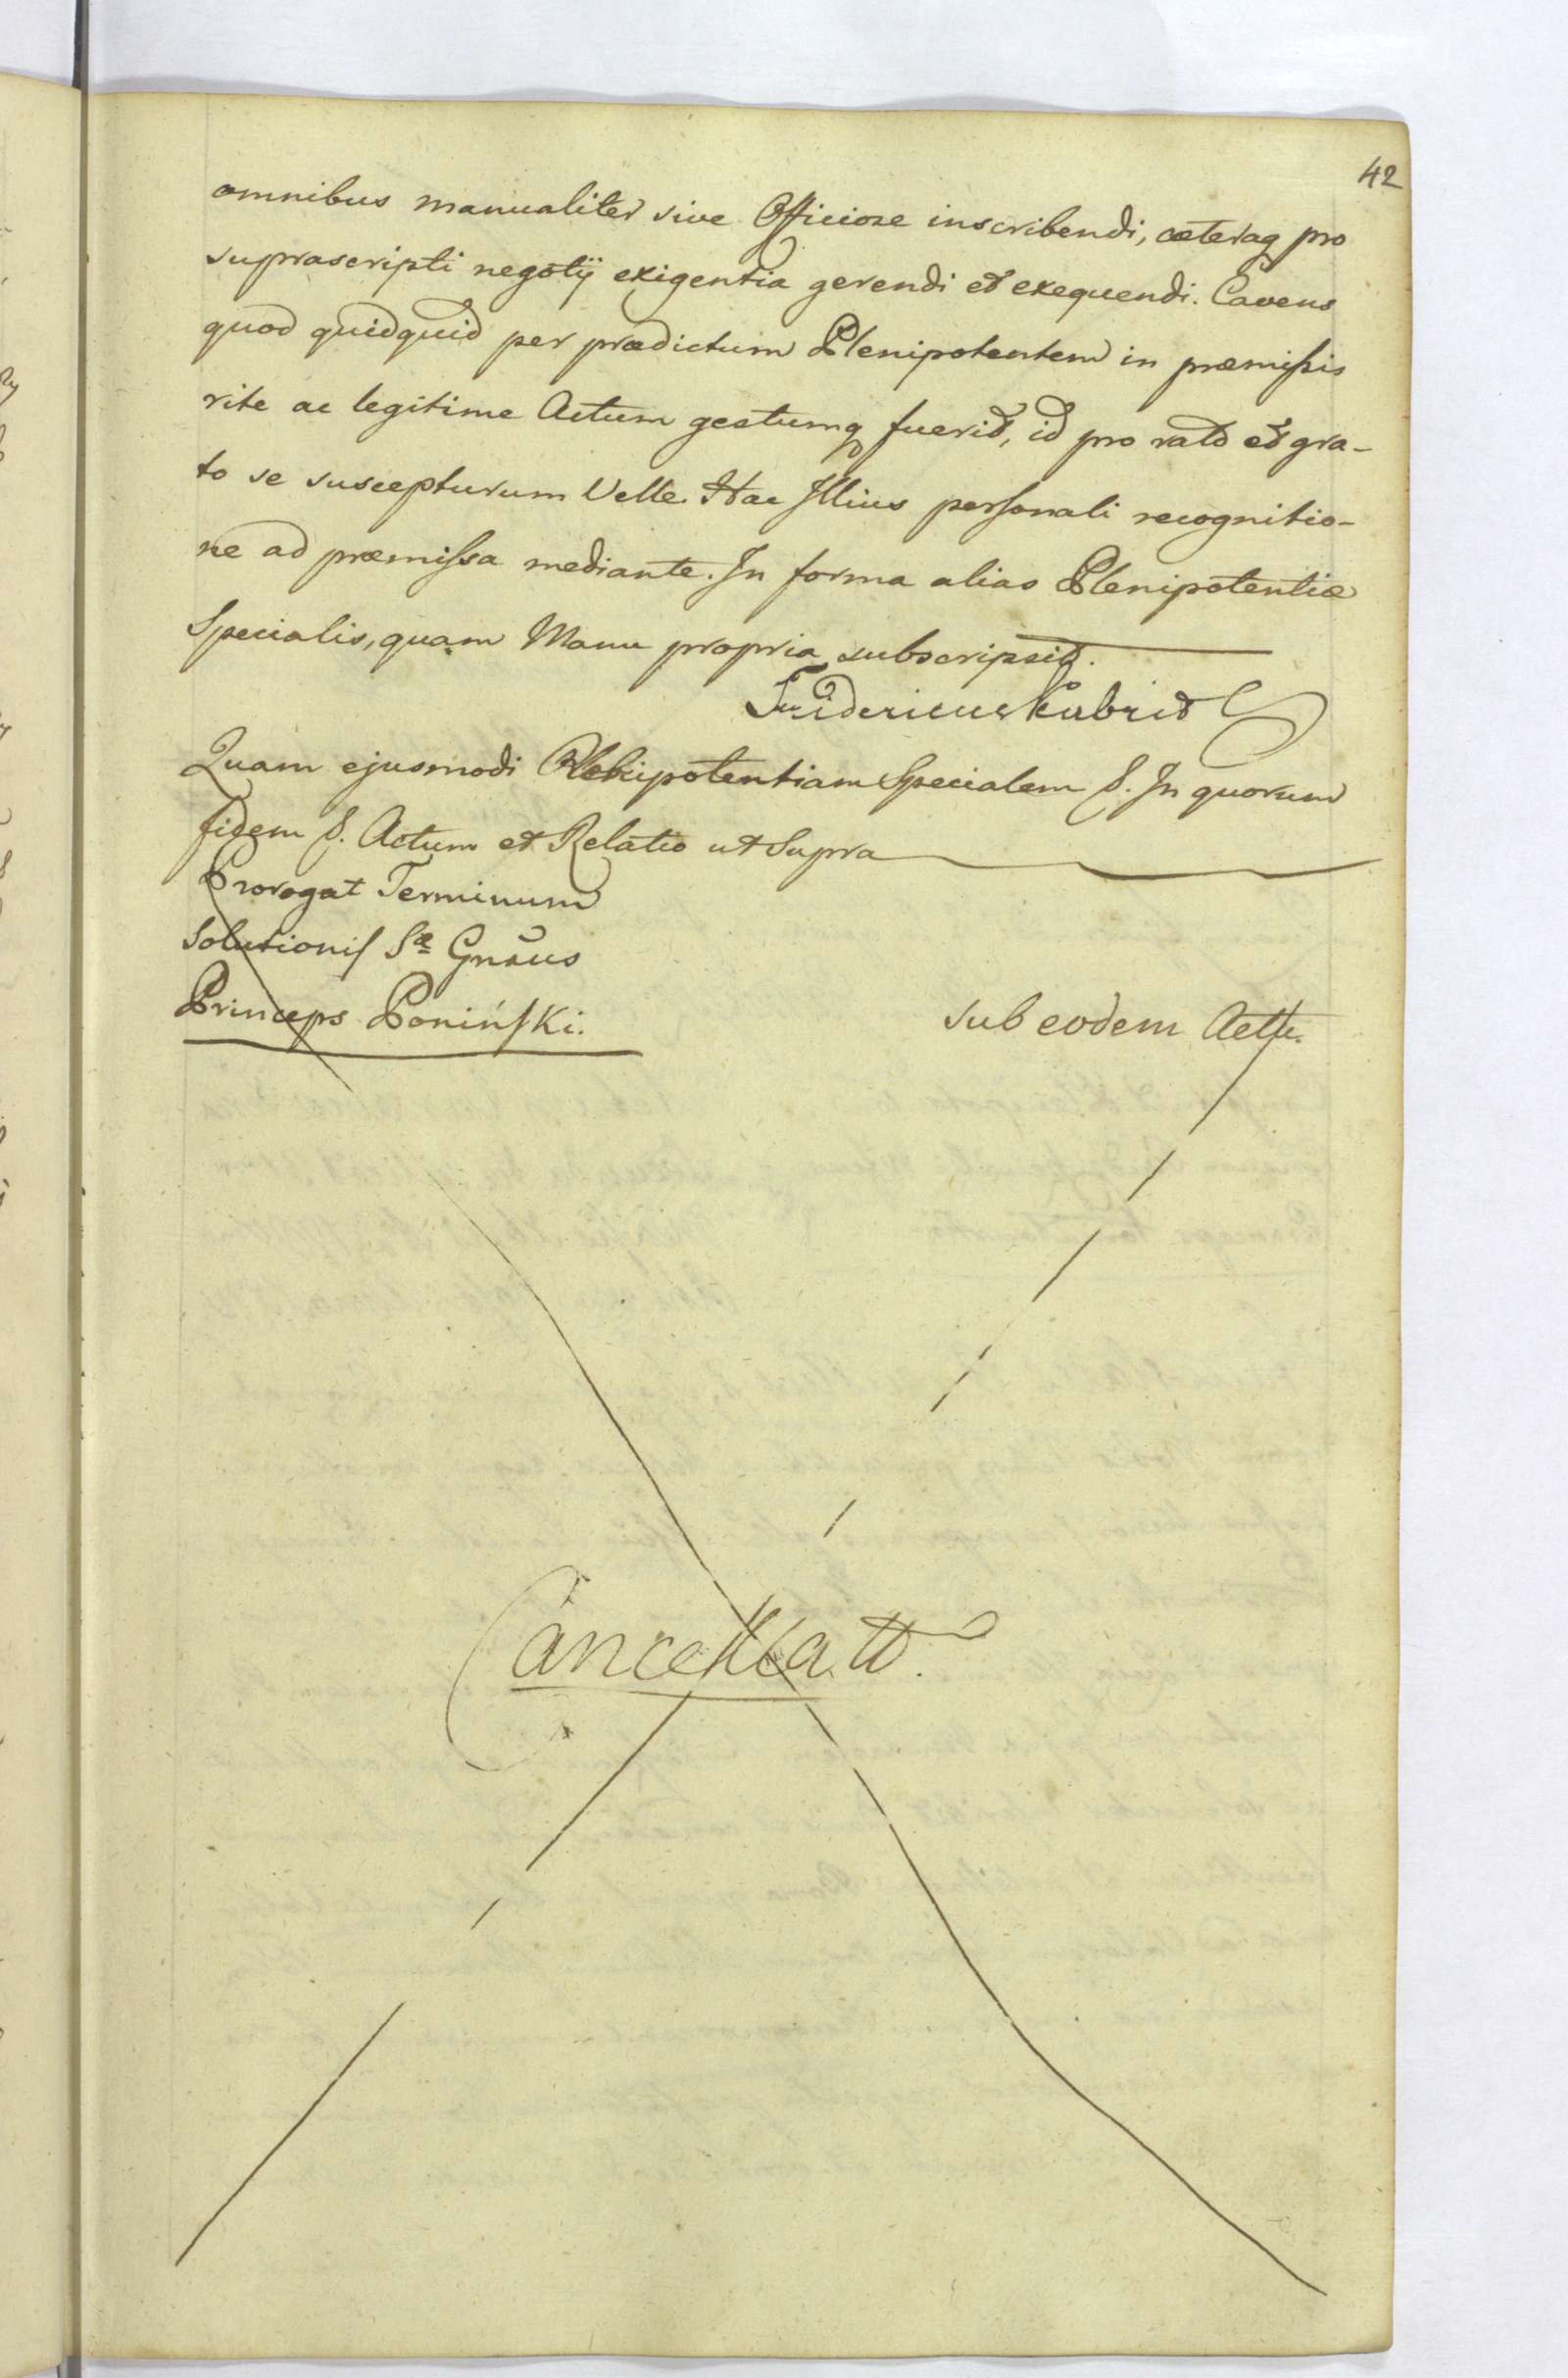 42
omnibus manualiter sive Officiose inscribendi, cæteraq pro
suprascripti negotij exigentia gerendi et exequendi. Cavens
quod quidquid per prædictum Plenipotentem in præmissis
rite ac legitime Actum gestumq fuerit, id pro rato et gra-
to se suscepturum Velle. Hac Illius personali recognitio-
ne ad præmissa mediante. In forma alias Plenipotentiæ
Specialis, quam Manu propria subscripsit.
Fridericus Kubrit
Quam ejusmodi Plenipotentiam Specialem &. In quorum
fidem &. Actum et Relatio ut Supra
Prorogat Terminum
Solutionis Sæ Gnsus
Princeps Poniński.
sub eodem Actu.
Cancellatt.